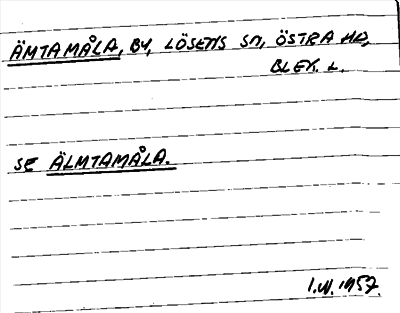 ÄMTAMÅLA, BY, LÖSENS SN, ÖSTRA HD,
BLEK. L.
SE ÄLMTAMÅLA.
I.W. 1957.